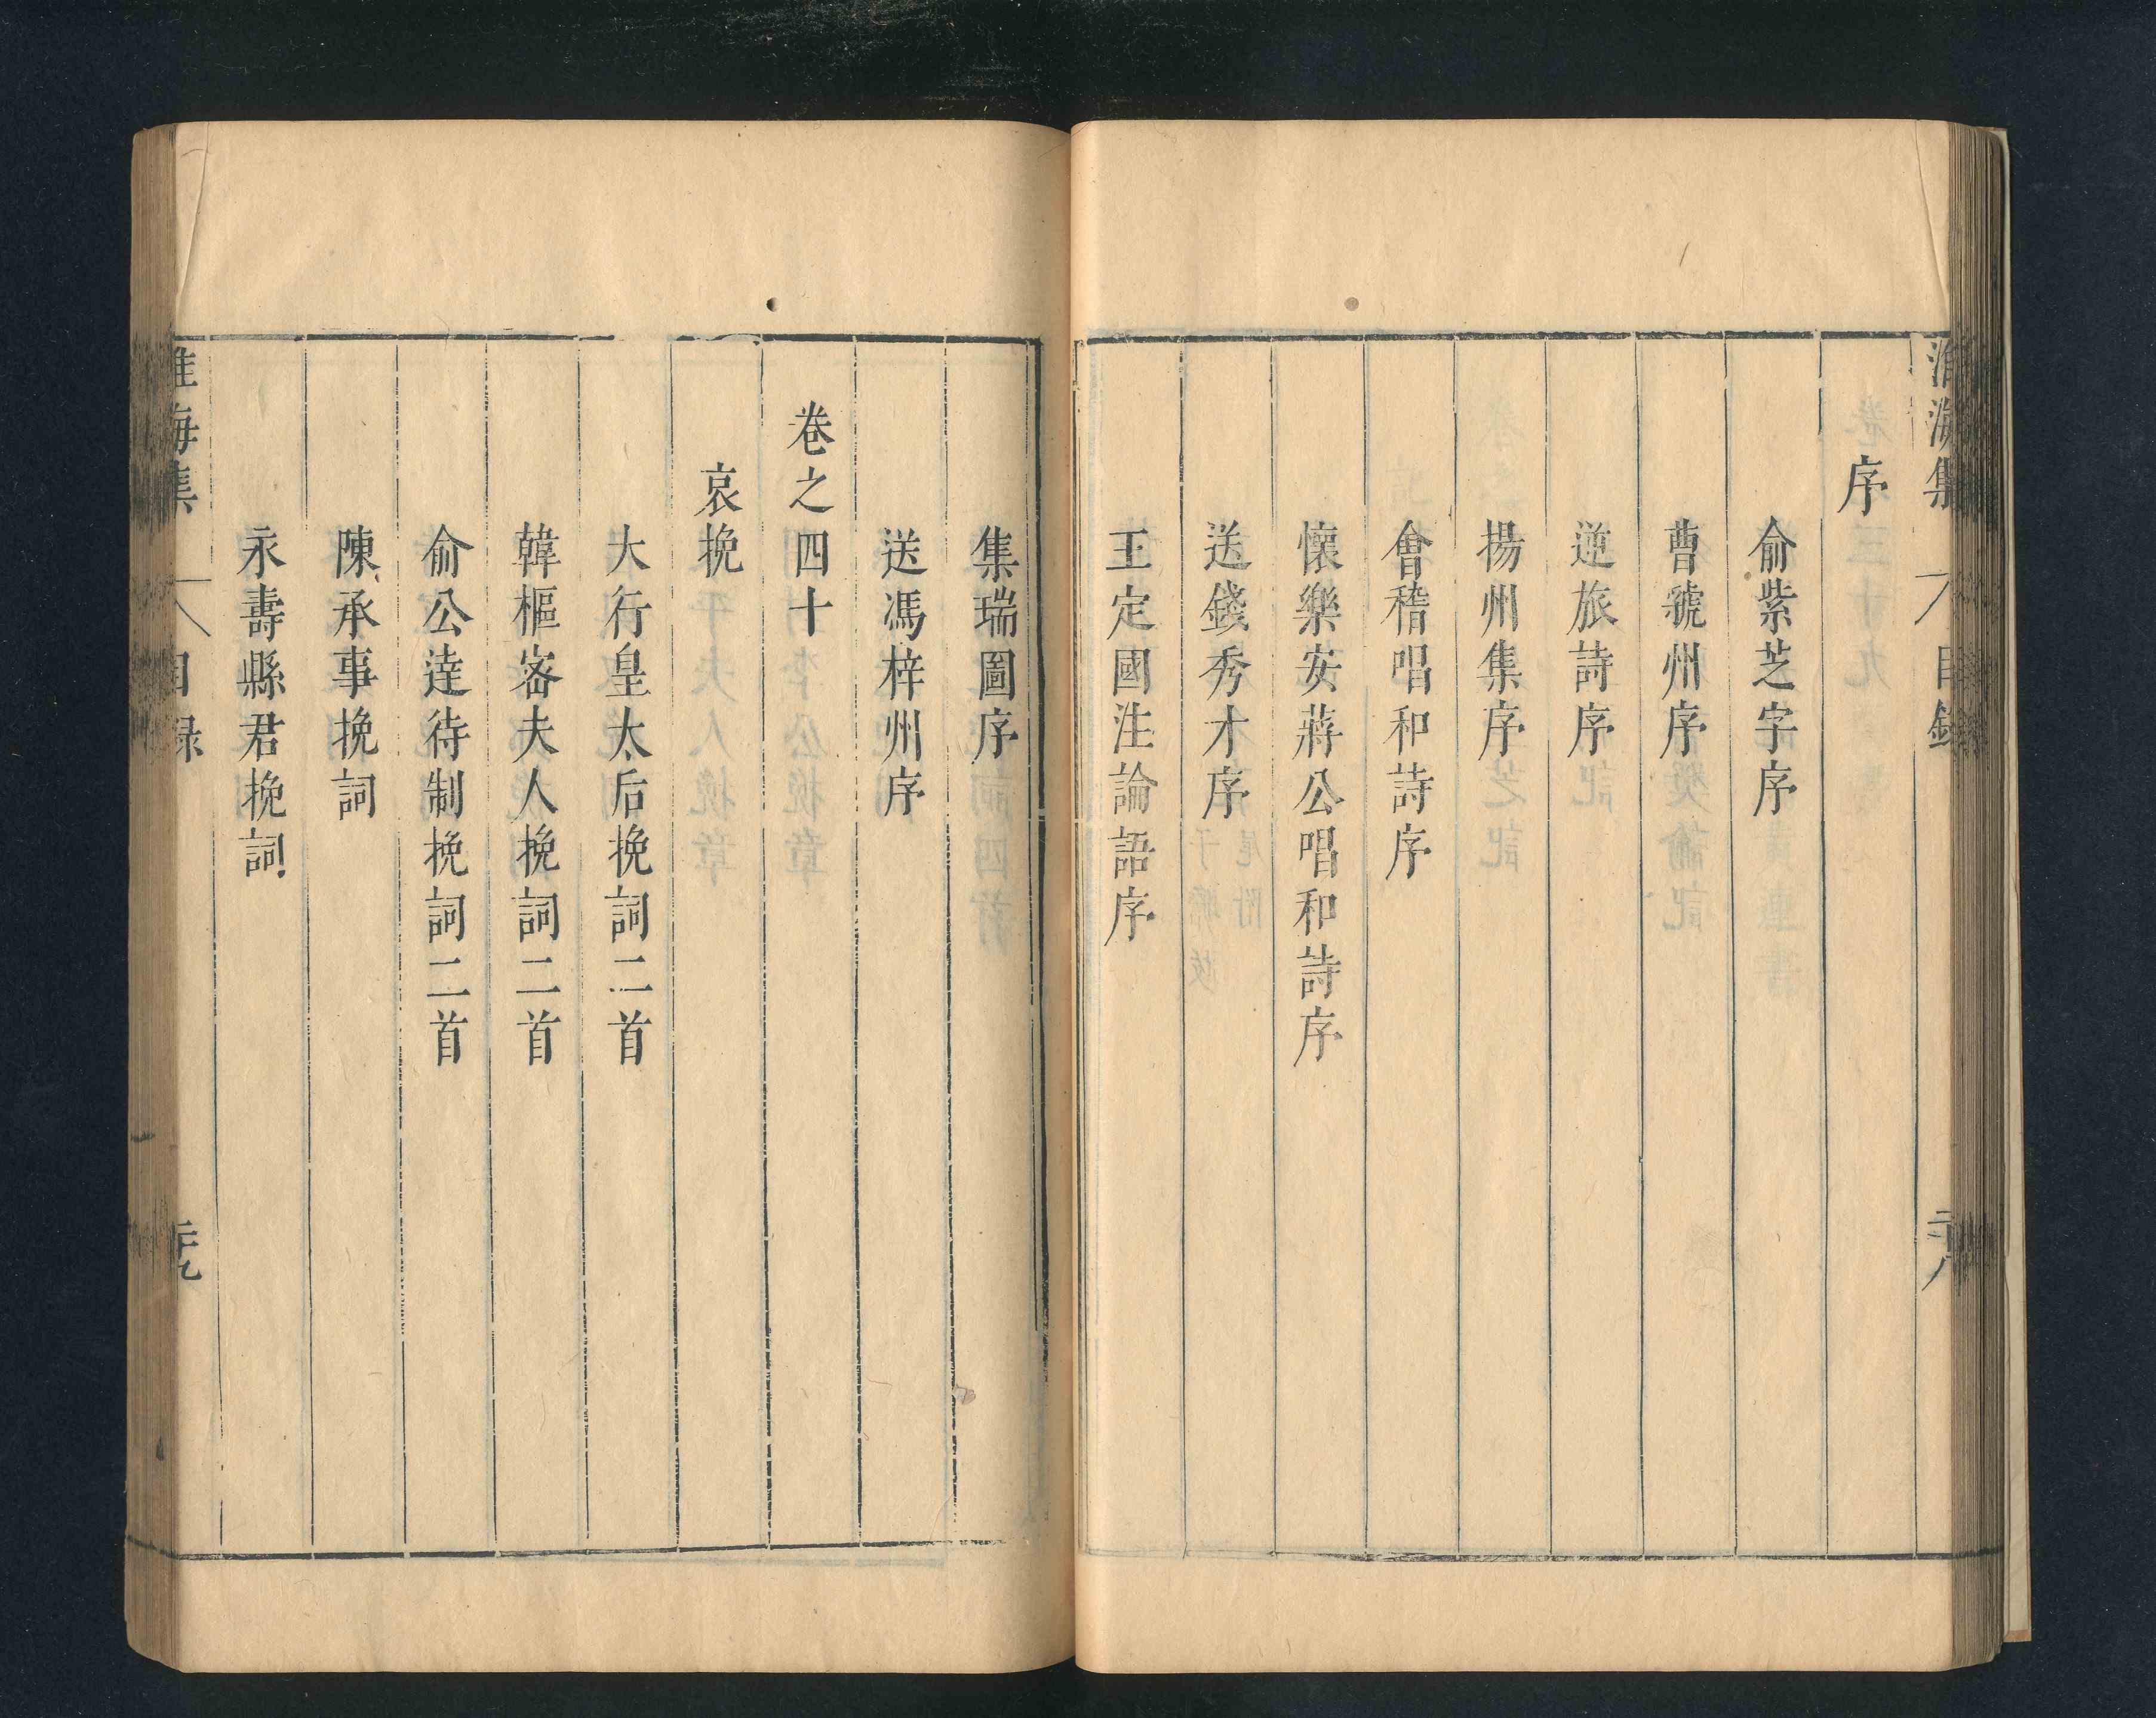 淮海集 目錄 二十八
序
俞紫芝字序
曹虢州序
逆旅詩序
揚州集序
會稽唱和詩序
懷樂安蔣公唱和詩序
送錢秀才序
王定國注論語序
集瑞圖序
送馮梓州序
卷之四十
哀挽
大行皇太后挽詞二首
韓樞宻夫人挽詞二首
俞公達待制挽詞二首
陳承事挽詞
永壽縣君挽詞
淮海集 目録